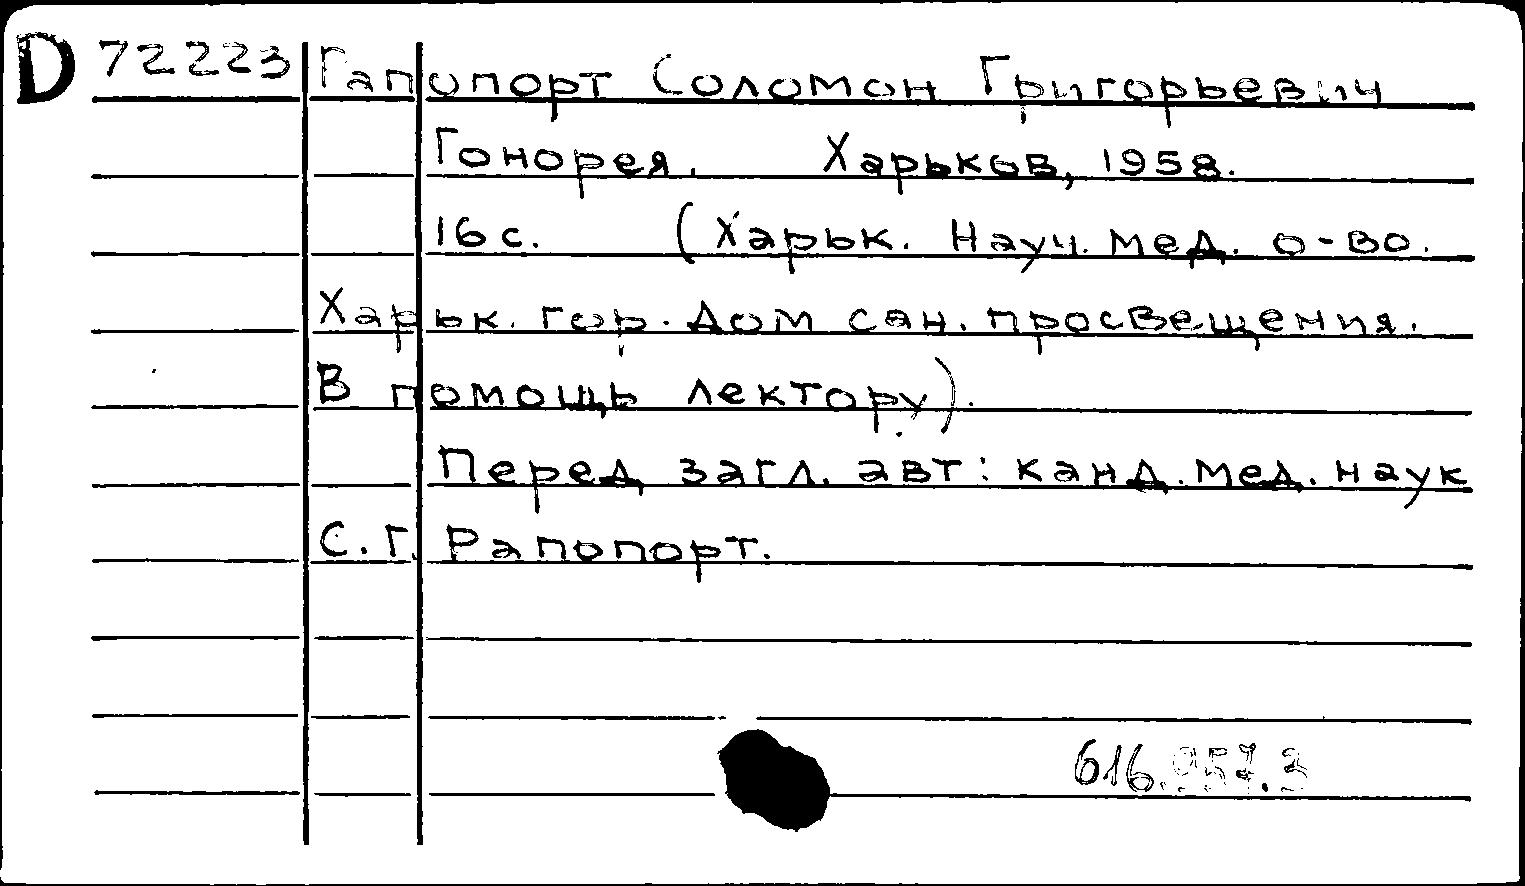 D 72223 Рапопорт Соломон Григорьевич
Гонорея. Харьков, 1958.
16 с. (Харьк. Науч. мед. о-во.
Харьк. гор. Дом сан. просвещения.
В помощь лектору).
Перед загл. авт: канд. мед. наук
С.Г. Рапопорт.
616.957.3